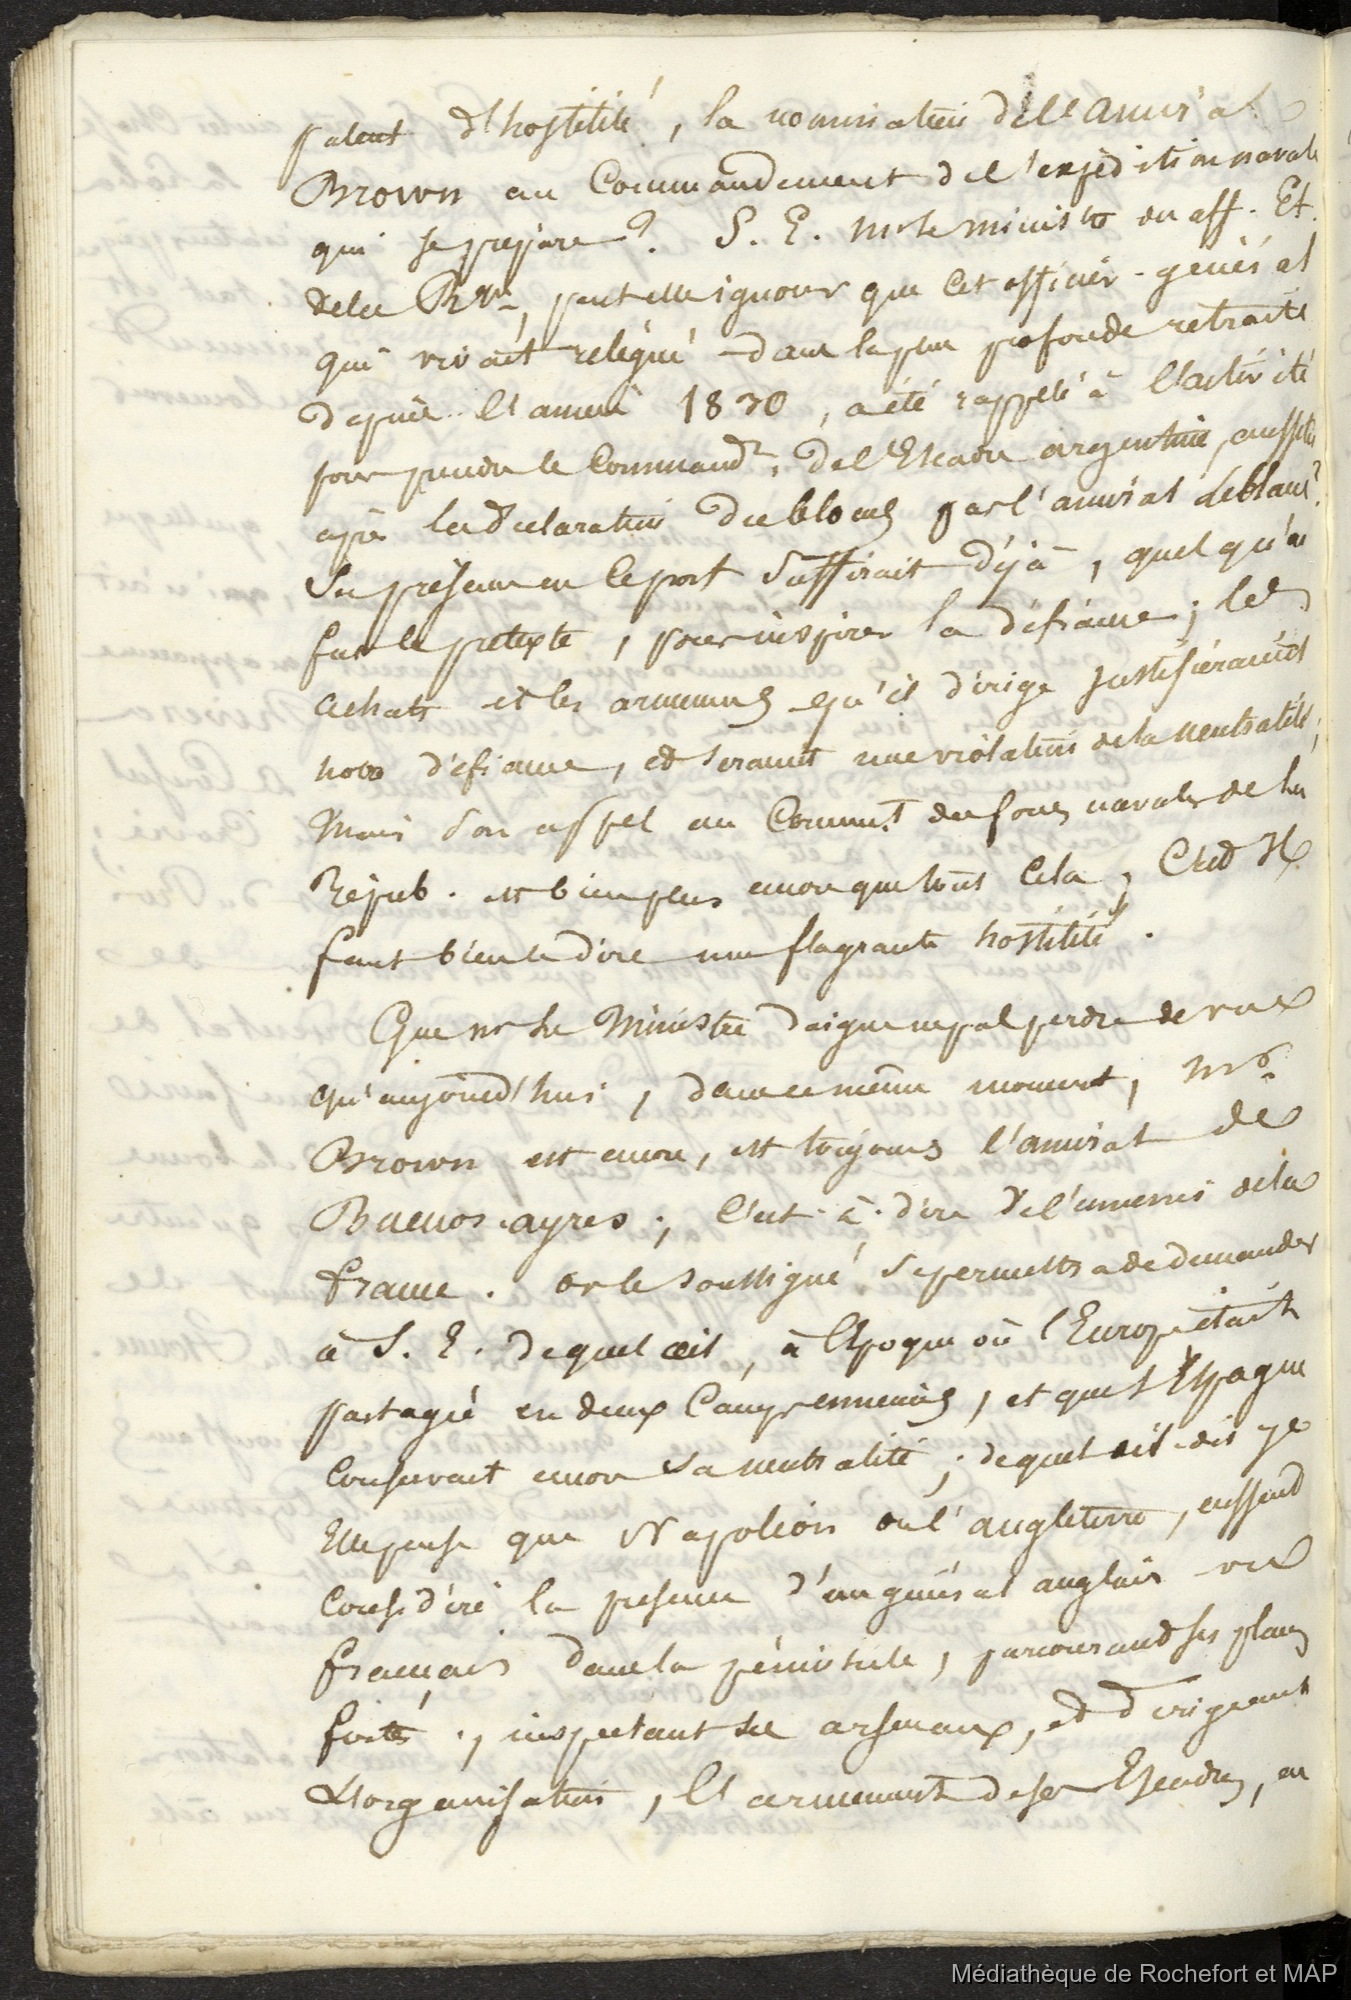 patent d'hostilité, la nomination de l'amiral
Brown au Commandement de l'expédition navale
qui se prépare ? S. E. Mr le ministre des aff. Et.
de la Rque, peut elle ignorer que cet officier-général
qui vivait relégué dans la plus profonde retraite
depuis l'année 1830, a été rappelé à l'activité
pour prendre le Commandt. de l'Escadre argentine, aussitôt
après la déclaration du blocus par l'amiral Leblanc ?
Sa présence en ce port suffirait déjà, quel qu'en
fut le prétexte, pour inspirer la défiance ; les
achats et les armemens qu'il dirige justifieraient
notre défiance, et seraient une violation de la neutralité,
Mais son appel au Commt. des forces navales de la
Répub. est bien plus encore que tout cela, C'est il
faut bien le dire une flagrante hostilité.
Que Mr le Ministre daigne ne pas perdre de vue
qu'aujourd'hui, dans ce même moment, Mr.
Brown est encore, est toujours l'amiral de
Buenos-ayres ; C'est-à-dire de l'ennemie de la
france. or le soussigné se permettra de demander
à S. E. de quel œil, à l'époque où l'Europe était
partagée en deux Camps ennemis, et que l'Espagne
Conservait encore sa neutralité ; de quel œil dis je
Elle pense que Napoléon ou l'angleterre, eussent
Considéré la présence d'un général anglais ou
français dans la péninsule, parcourant ses places
fortes, inspectant ses arsenaux, et dirigeant
L'organisation, l'armement de ses Escadres, en
Médiathèque de Rochefort et MAP